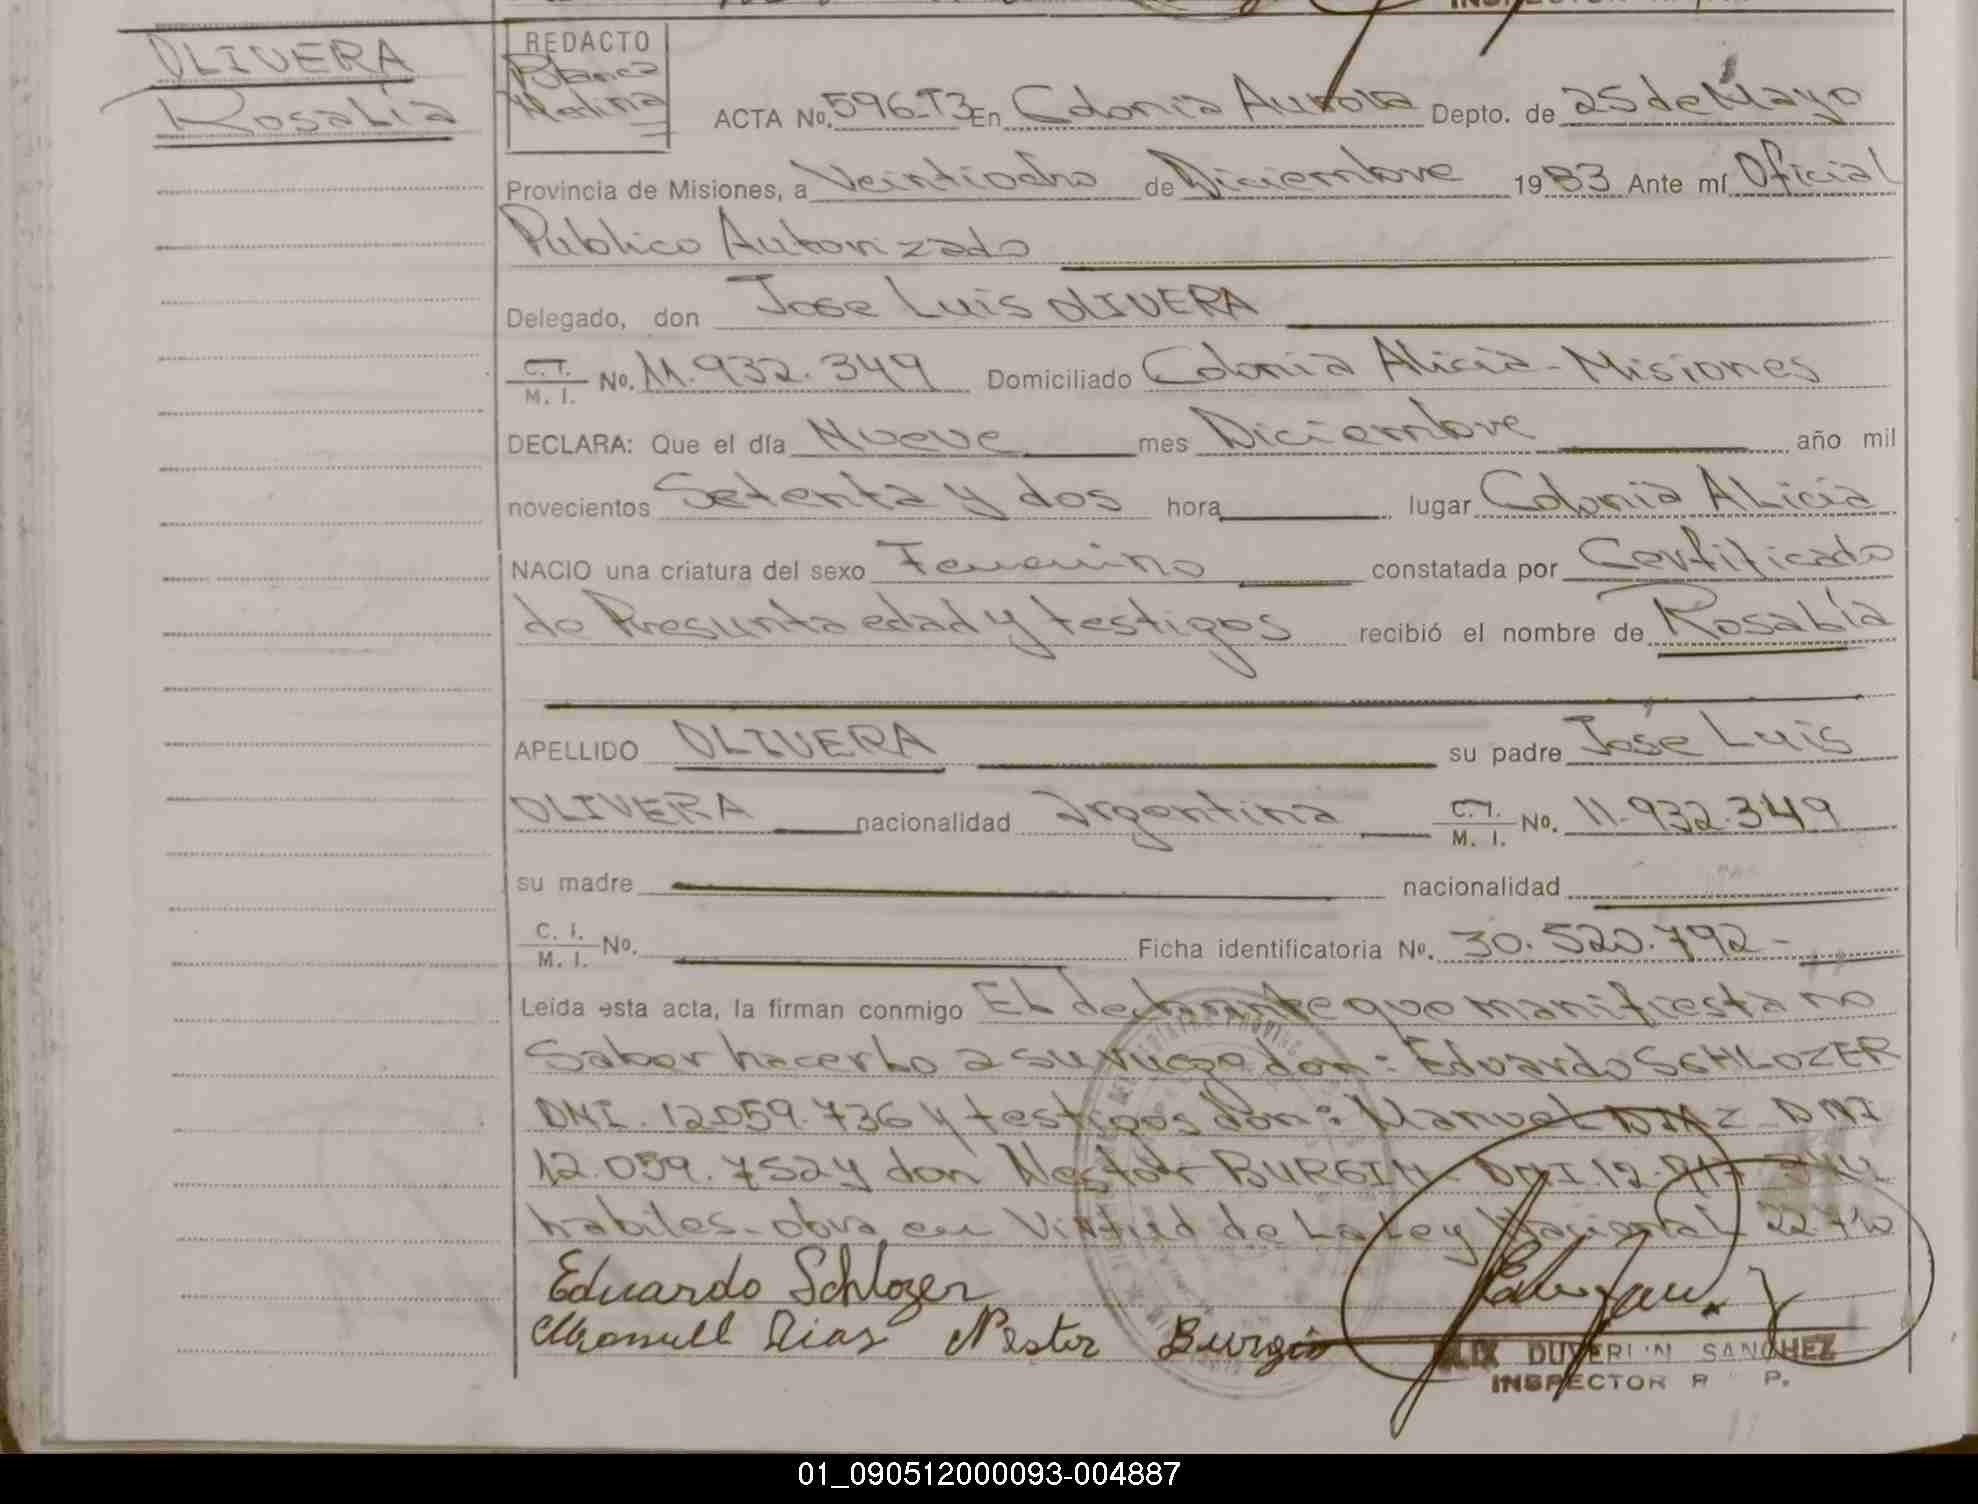 OLIVERA
Rosalía
REDACTO
Blanca
Molina
ACTA No. 596-T3 En Colonia Aurora Depto. de 25 de Mayo
Provincia de Misiones, a Veintiocho de Diciembre 1983 Ante mí Oficial
Publico Autorizado
Delegado, don Jose Luis OLIVERA
C.I. M. I. No. 11.932.349 Domiciliado Colonia Alicia - Misiones
DECLARA: Que el día Nueve mes Diciembre año mil
novecientos Setenta y dos hora lugar Colonia Alicia
NACIO una criatura del sexo Femenino constatada por Certificado
de Presunta edad y testigos recibió el nombre de Rosalía
APELLIDO OLIVERA su padre José Luis
OLIVERA nacionalidad argentina C.I. M. I. No. 11.932.349
su madre nacionalidad
C. I. M. I. No. Ficha identificatoria No. 30.520.792-
Leída esta acta, la firman conmigo El declarante que manifiesta no
Saber hacerlo a su ruego don: Eduardo SCHLOZER
DNI. 12.059.736 y testigos don: Manuel DIAZ - DNI
12.059.752 y don Nestor BURGIN - DNI. 12.
habiles - obra en Virtud de La Ley Nacional 22.710
Eduardo Schlozer
Manuell Dias Nestor Burgin
DUVERLIN SANCHEZ
INSPECTOR R P.
01_090512000093-004887